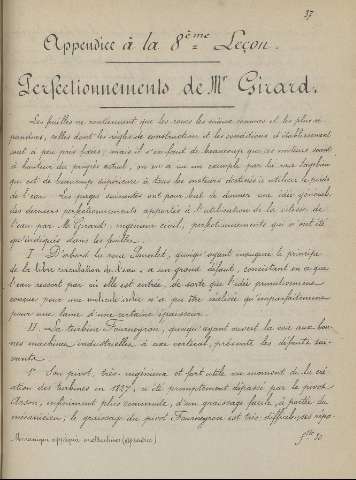 37
Appendice à la 8ème Leçon.
Perfectionnements de Mr Girard.
Les feuilles ne contiennent que les roues les mieux connues et les plus ré-
pandues, celles dont les règles de construction et les conditions d'établissement
sont à peu près fixées; mais il s'en faut de beaucoup que ces moteurs soient
à hauteur du progrès actuel, on en a vu un exemple par la roue Sagebien
qui est de beaucoup supérieure à tous les moteurs destinés à utiliser le poids
de l'eau. Les pages suivantes ont pour but de donner une idée générale
des derniers perfectionnements apportés à l'utilisation de la vitesse de
l'eau par M. Girard, ingénieur civil, perfectionnements qui n'ont été
qu'indiqués dans les feuilles.
I. D'abord la roue Poncelet, quoiqu'ayant inauguré le principe
de la libre circulation de l'eau, a un grand défaut, consistant en ce que
l'eau ressort par où elle est entrée, de sorte que l'idée primitivement
conçue pour une molécule isolée n'a pu être réalisée qu'imparfaitement
pour une lame d'une certaine épaisseur.
II. La turbine Fourneyron, quoiqu'ayant ouvert la voie aux bon-
nes machines industrielles à axe vertical, présente les défauts sui-
vants.
1° Son pivot, très ingénieux et fort utile au moment de la cré-
ation des turbines en 1827, a été promptement dépassé par le pivot
Arson, infiniment plus commode, d'un graissage facile, à portée du
mécanicien; le graissage du pivot Fourneyron est très difficile, ses répa-
Mécanique appliquée
flle 10